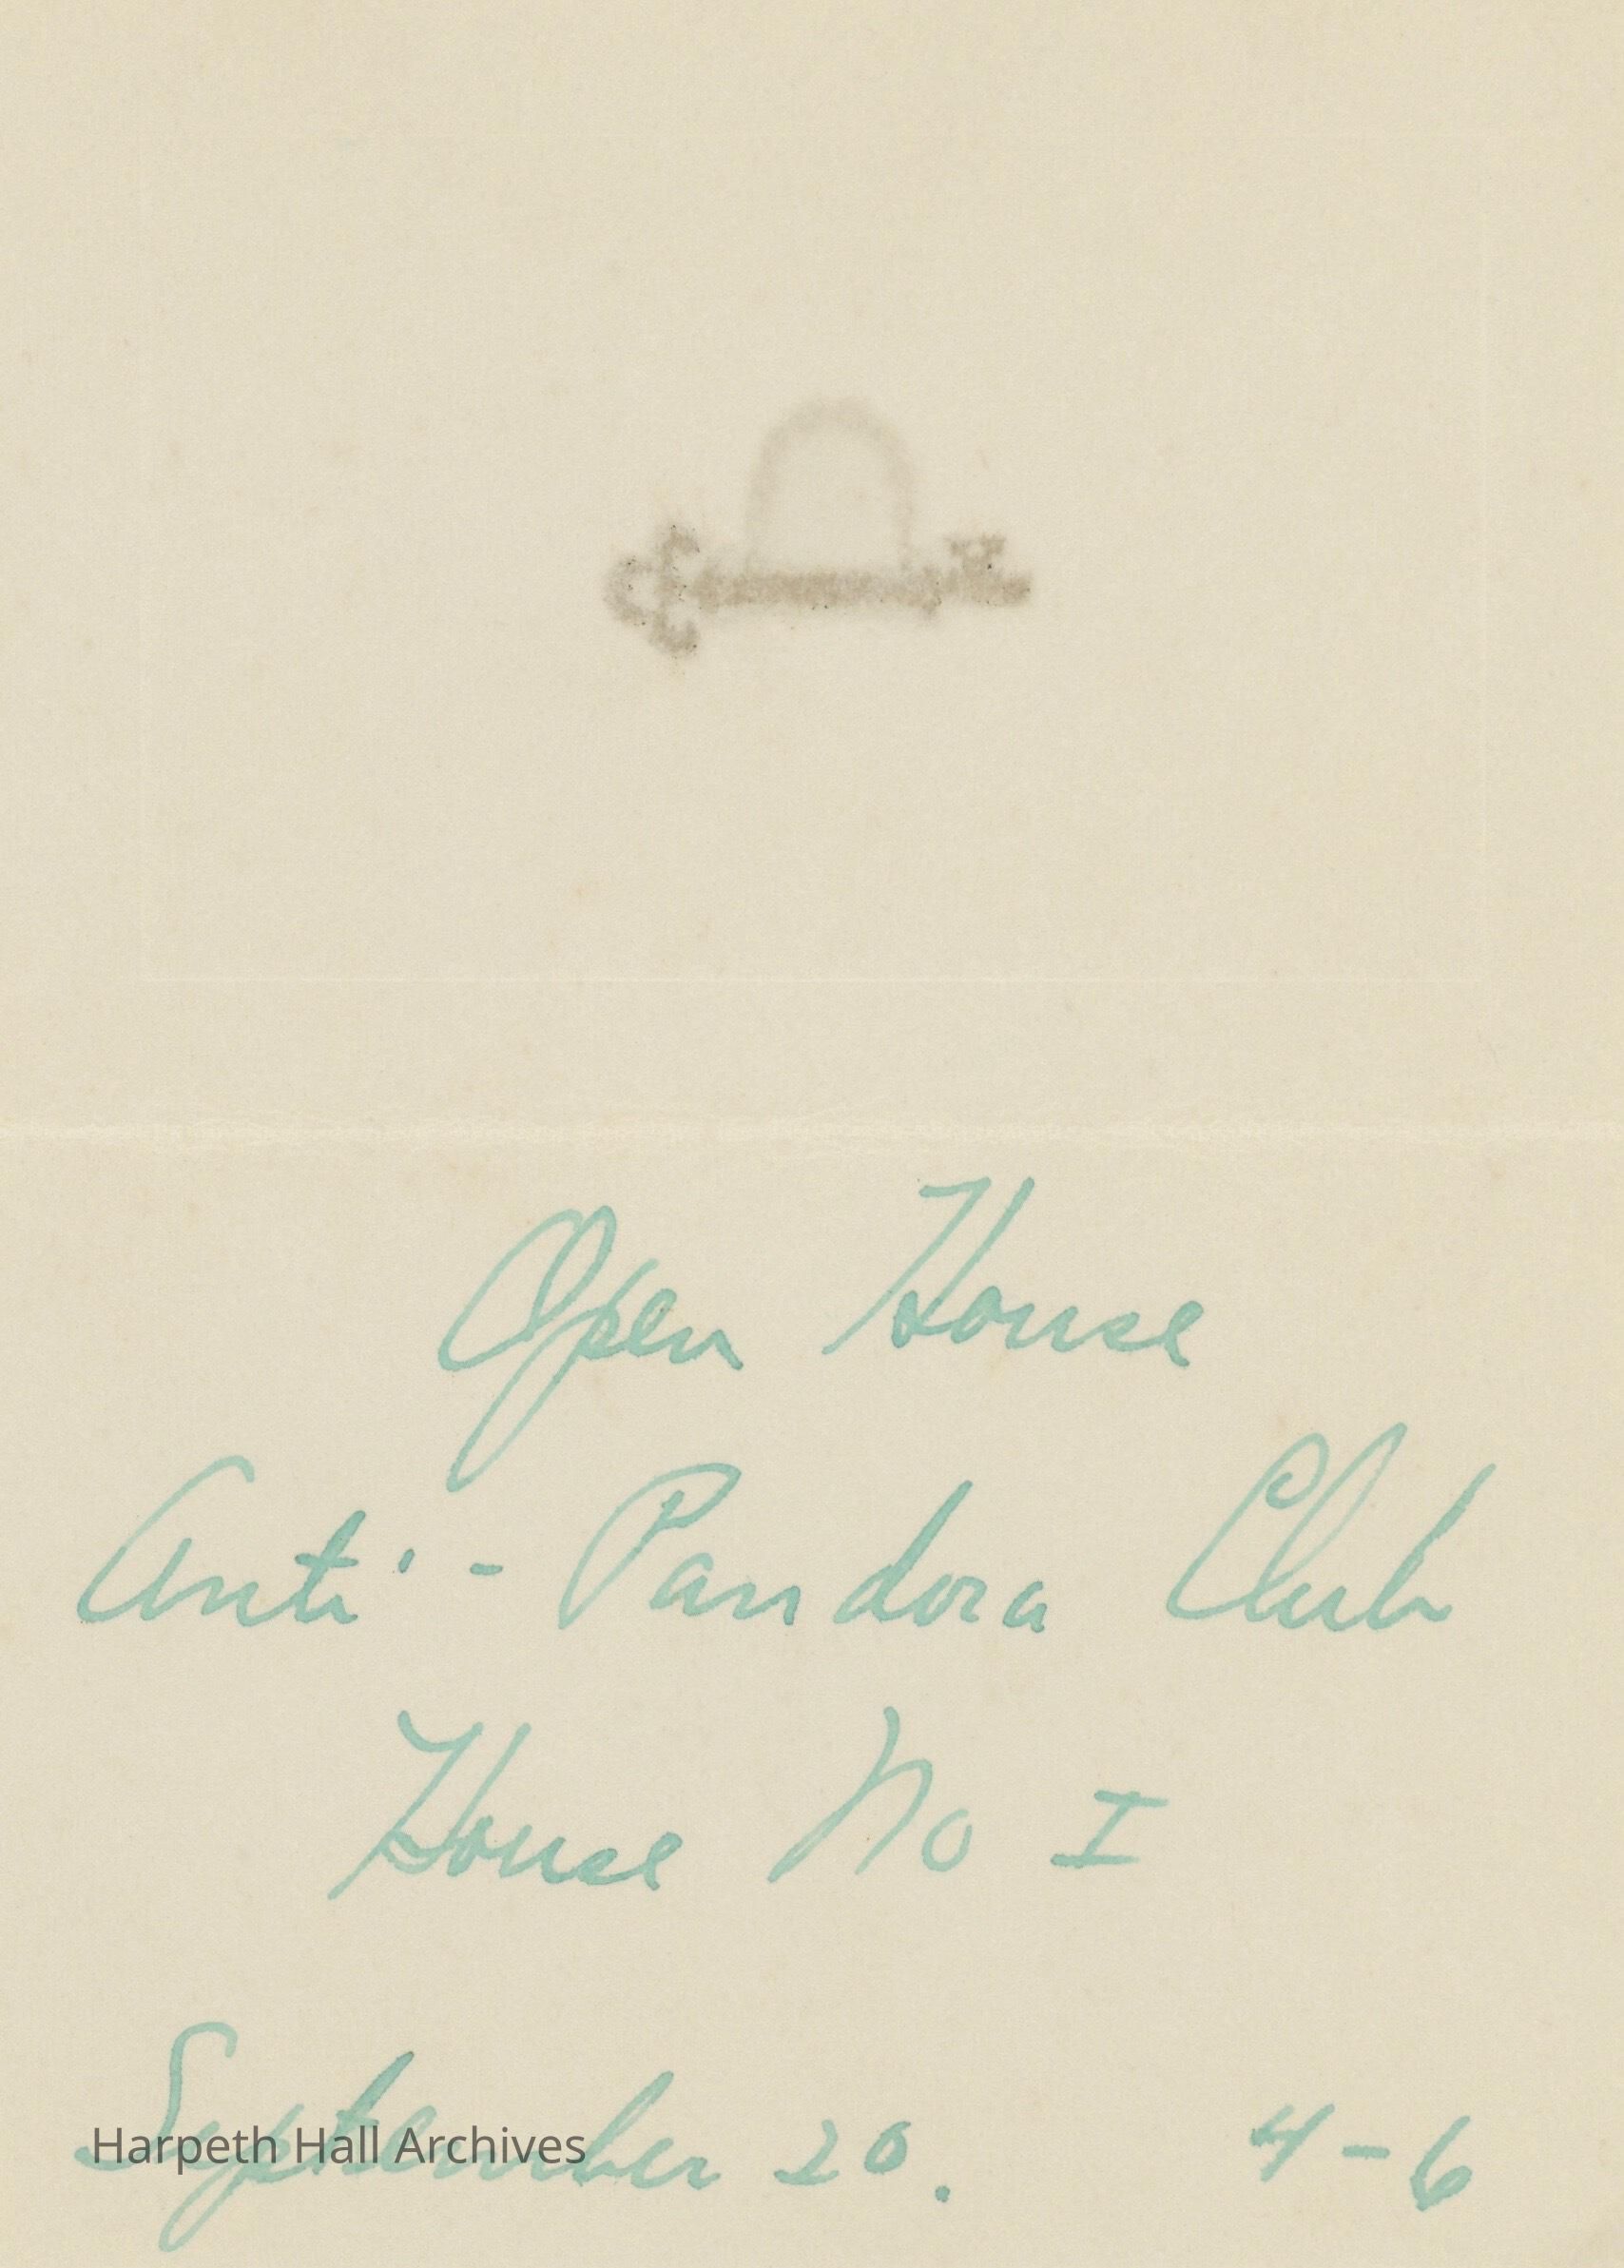 Open House
Anti-Pandora Club
House No I
September 20. 4-6
Harpeth Hall Archives